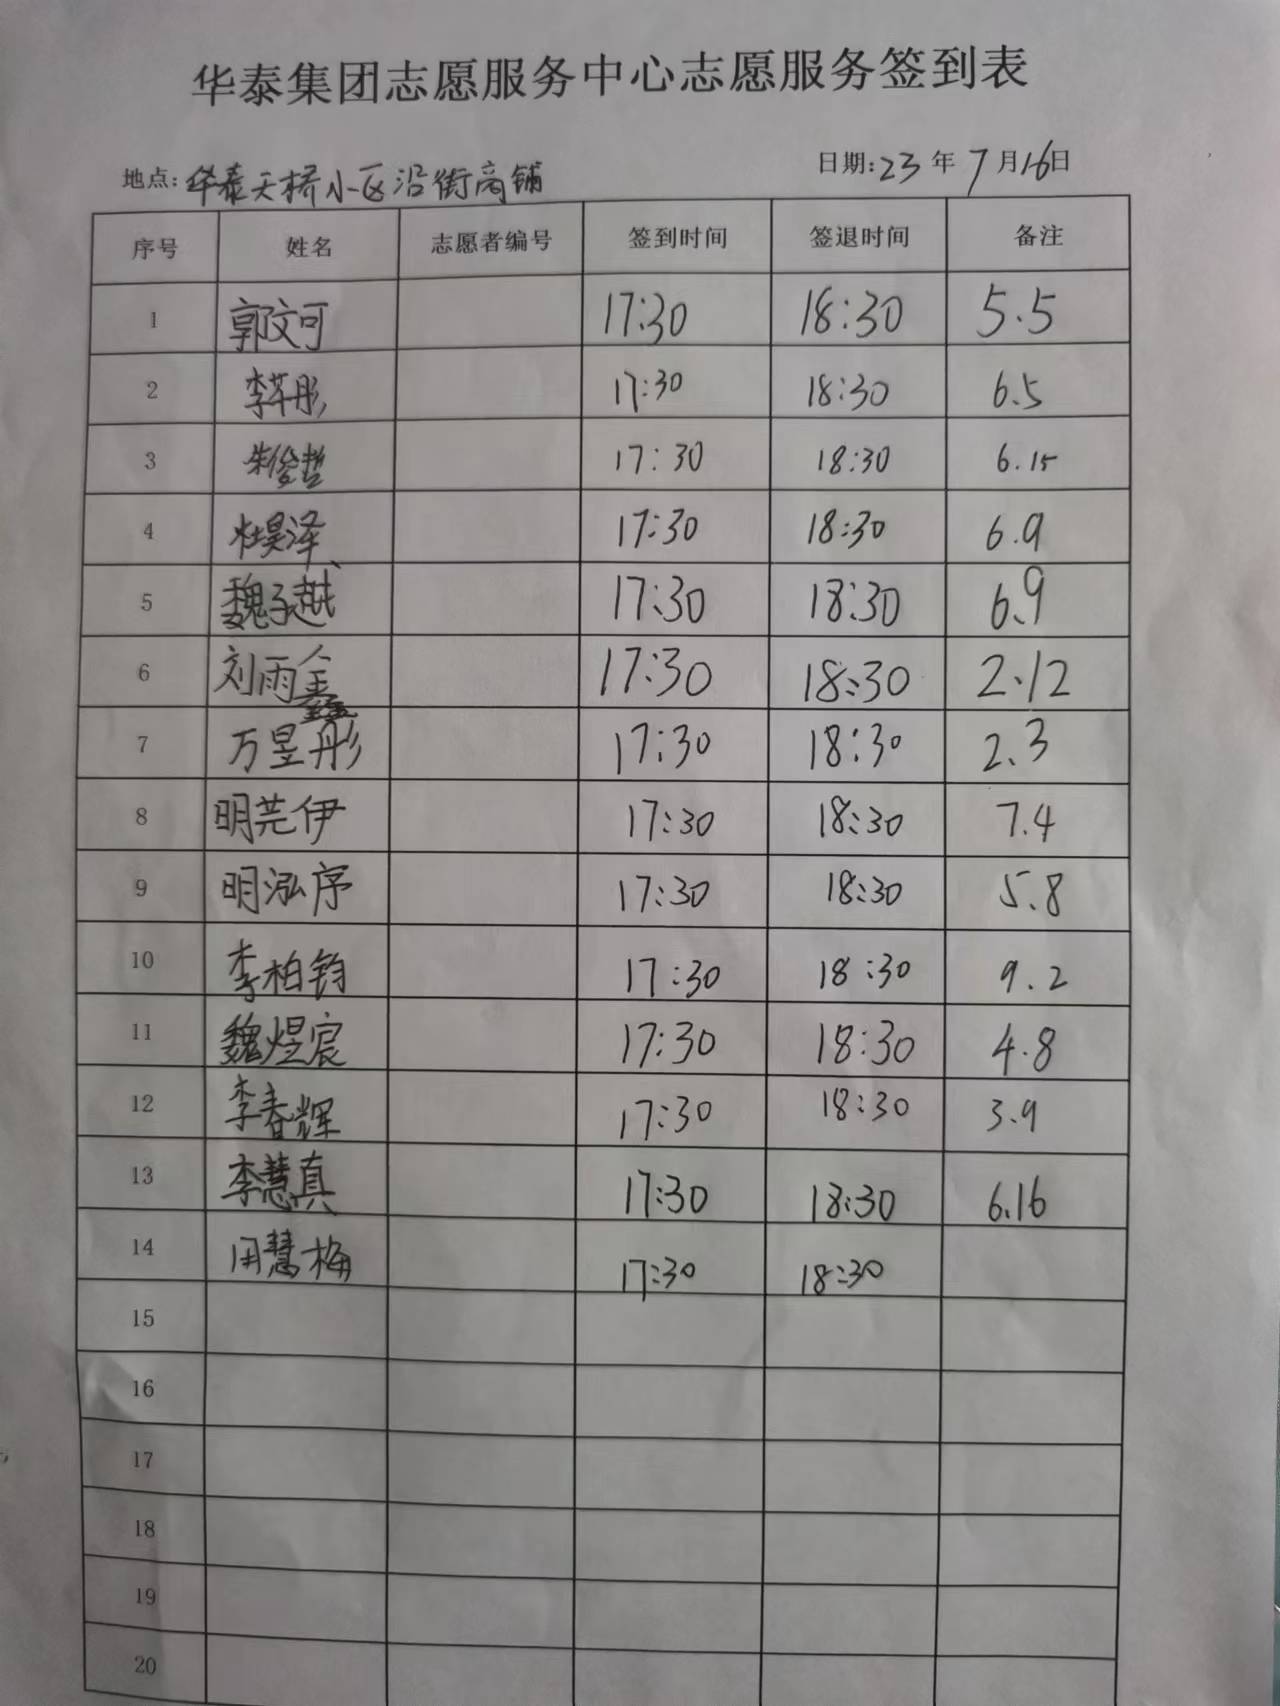 华泰集团志愿服务中心志愿服务签到表
地点:华泰天桥小区沿街商铺 日期:23年7月16日
序号 姓名 志愿者编号 签到时间 签退时间 备注
1 郭文可 17:30 18:30 5.5
2 李芊彤 17:30 18:30 6.5
3 朱俊哲 17:30 18:30 6.15
4 杜昊泽 17:30 18:30 6.9
5 魏子越 17:30 18:30 6.9
6 刘雨鑫 17:30 18:30 2.12
7 万昱彤 17:30 18:30 2.3
8 明芫伊 17:30 18:30 7.4
9 明泓序 17:30 18:30 5.8
10 李柏钧 17:30 18:30 9.2
11 魏煜宸 17:30 18:30 4.8
12 李春辉 17:30 18:30 3.9
13 李慧真 17:30 18:30 6.16
14 田慧梅 17:30 18:30
15
16
17
18
19
20